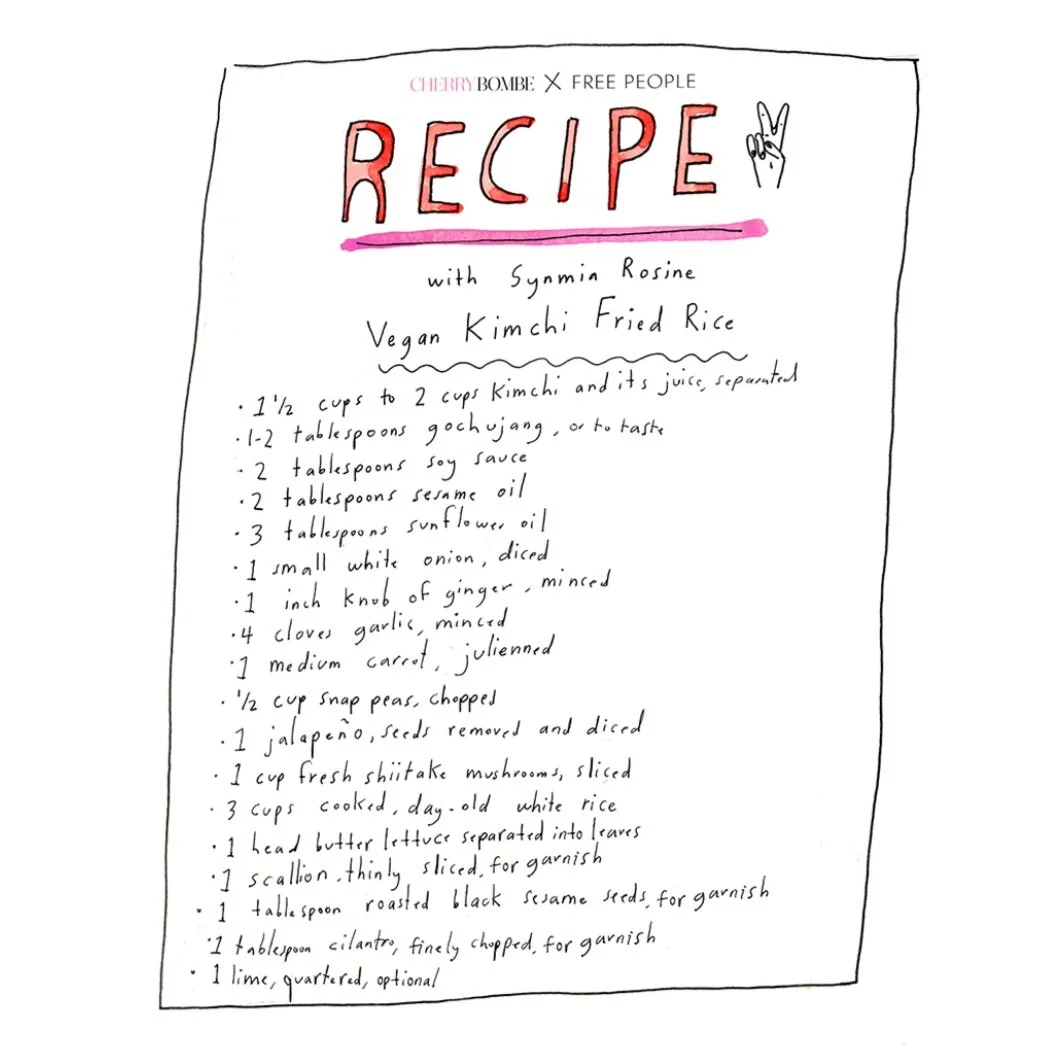 CHERRYBOMBE X FREE PEOPLE
RECIPE
with Synmia Rosine
Vegan Kimchi Fried Rice
· 1 1/2 cups to 2 cups Kimchi and its juice, separated
· 1-2 tablespoons gochujang, or to taste
· 2 tablespoons soy sauce
· 2 tablespoons sesame oil
· 3 tablespoons sunflower oil
· 1 small white onion, diced
· 1 inch knob of ginger, minced
· 4 cloves garlic, minced
· 1 medium carrot, julienned
· 1/2 cup snap peas, chopped
· 1 jalapeño, seeds removed and diced
· 1 cup fresh shiitake mushrooms, sliced
· 3 cups cooked, day-old white rice
· 1 head butter lettuce separated into leaves
· 1 scallion, thinly sliced, for garnish
· 1 tablespoon roasted black sesame seeds, for garnish
· 1 tablespoon cilantro, finely chopped, for garnish
· 1 lime, quartered, optional